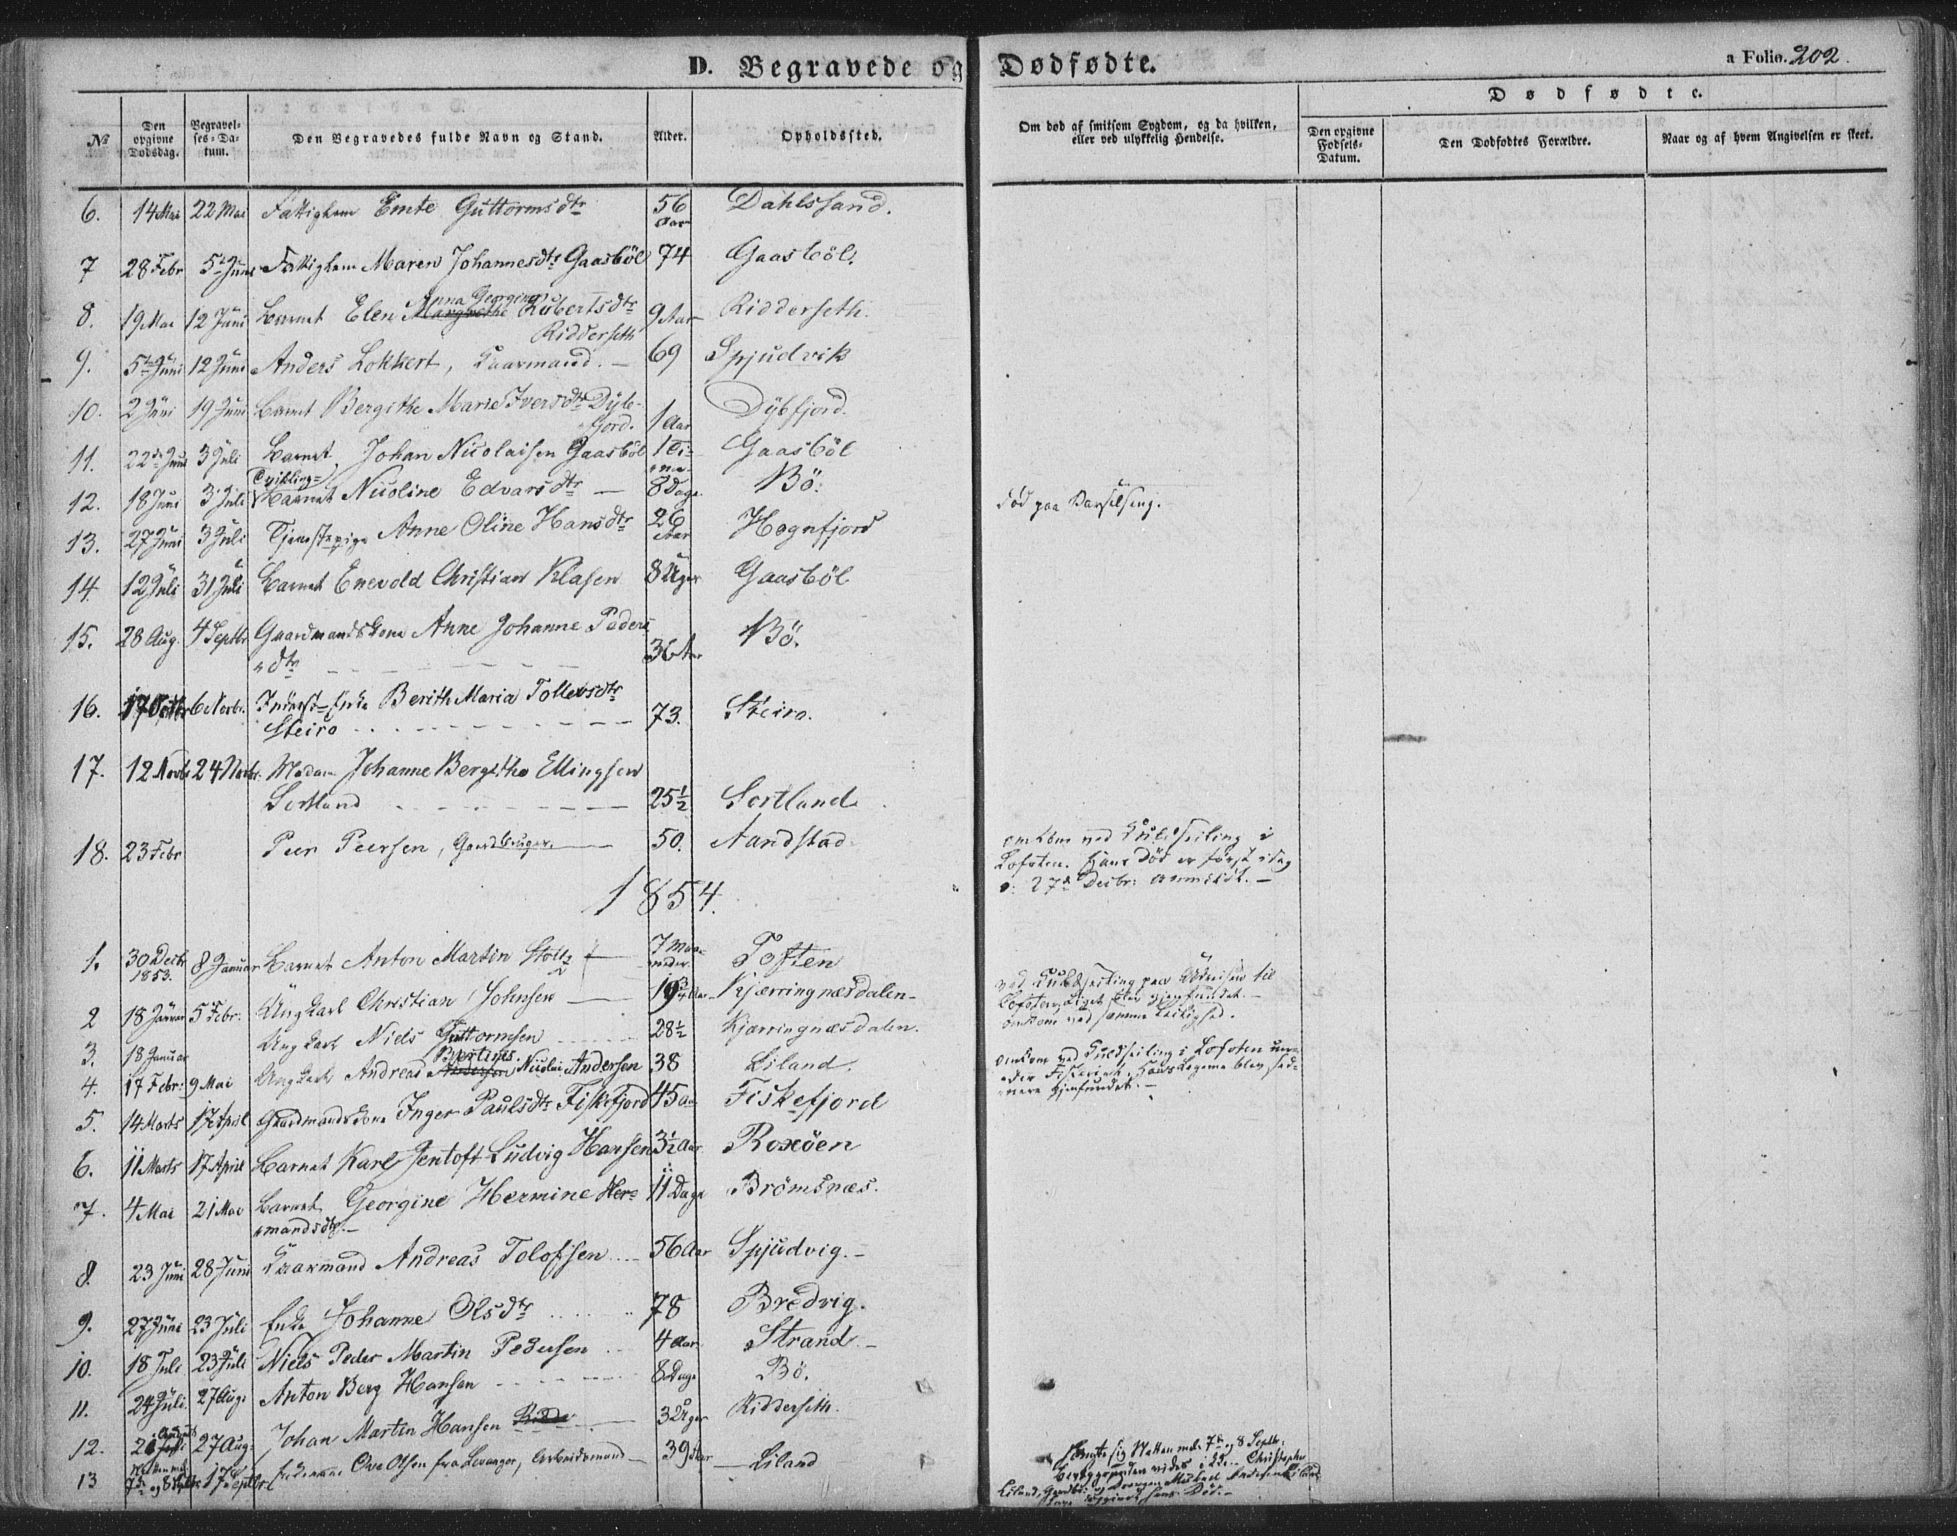 D. Begravede og Dødfødte.
a Folio. 202.
Dødfødte.
No
Den opgivne Dødsdag.
Begravelses-Datum.
Den Begravedes fulde Navn og Stand.
Alder.
Opholdssted.
Om død af smitsom Sygdom, og da hvilken, eller ved ulykkelig Hendelse.
Den opgivne Fødsels-Datum.
Den Dødfødtes Forældre.
Naar og af hvem Angivelsen er skeet.
6. 14 Mai 22 Mai Fattiglem Emte Guttormsdtr 56 Aar Dahlssand.
7 28 Febr 5te Juni Fattiglem Maren Johannesdtr Gaasböl 74 Gaasböl.
Anna Georgine
8. 19 Mai 12 Juni Barnet Elen Margrethe Rubertsdtr 9 Aar Ridderseth.
Ridderseth
9. 5te Juni 12 Juni Anders Lokkert, Kaarmand. 69 Spjudvik
10. 2 Juni 19 Juni Barnet Bergithe Marie Iversdtr Dyb-
fjord. 1 Aar Dybfjord.
11. 22de Juni 3 Juli Barnet Johan Nicolaisen Gaasböl 1 Ti-
me Gaasböl
Tvilling-
12. 18 Juni 3 Juli Barnet Nicoline Edvarsdtr 8 Dage Bö.
13. 27 Juni 3 Juli Tjenestepige Anne Oline Hansdtr 26 Aar Hognfjord død paa Barselseng.
14. 12 Juli 31 Juli Barnet Enevold Christian Klasen 8 Uger Gaasböl
15. 28 Aug. 4 Septbr Gaardmandskone Anne Johanne Peders
dtr 36 Aar Bö.
16. 17 Octbr 6 Novbr. Inderst-Enke Berith Maria Tollevsdtr
Steiro 73. Steiro.
17. 12 Novbr 24 Novbr. Madam Johanne Bergitha Ellingsen
Sortland 25½ Sortland
18. 23 Febr Peer Peersen, Gaardbruger. 50. Aandstad
omkom ved Kuldseiling i
Lofoten. Hans Død er først idag
o: 27de Decbr: anmeldt.
1854.
1. 30 Decbr 1853. 8 Januar Barnet Anton Martin Stoltz 7 Maaneder Toften
2 18 Januar 5te Febr: Ungkarl Christian Johnsen 19¾ Aar Kjærringnæsdalen
ved Kuldseiling paa Udreisen til
Lofoten. Liget blev gjenfundet.
3. 18 Januar Ungkarl Niels Guttormsen 28½ Kjærringnæsdalen.
omkom ved samme Leilighed.
Bertines
4. 17 Febr: 9 Mai Ungkarl Andreas Andersen Nicolai Andersen 38 Liland.
omkom ved Kuldseiling i Lofoten un-
der Fiskeriet. Hans Legeme blev sed-
nere gjenfundet.
5. 14 Marts 17 April Gaardmandskone Inger Paulsdtr Fiskfjord 45 Aar Fiskefjord
6. 11 Marts 17 April Barnet Karl Jentoft Ludvig Hansen 3½ Aar Roxöen
7. 4 Mai 21 Mai Barnet Georgine Hermine Her-
mandsdtr. 11 Dage Brömsnæs.
8. 23 Juni 28 Juni Kaarmand Andreas Tolofsen 56 Aar Spjudvig.
9. 27 Juni 23 Juli Enke Johanne Olsdtr 78 Bredvig.
10. 18 Juli 23 Juli Niels Peder Martin Pedersen 4 Aar Strand.
11. 24 Juli. 27 Aug: Anton Berg Hansen 8 Dage Bö.
August
12. 2 Juli 27 Aug: Johan Martin Hansen Ridde 3 Uger Ridderseth.
Natten mel.
13 7de og 8 Septbr 17 Septbr. Ove Olsen fra Levanger, Arbeidsmand 39 Aar Liland
sig Natten mel. 7de og 8 Septbr.
Christopher
Liland, Gaardbr: og Drengen Michael Andersen Liland
hans Död.